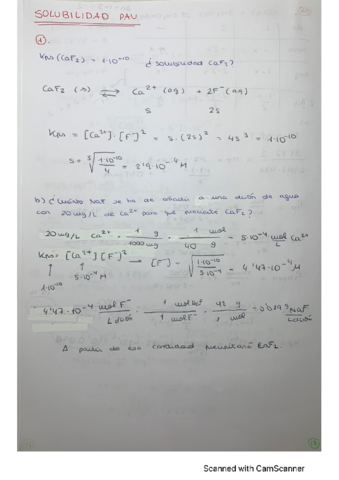 SOLUBILIDAD PAU
①
Kps (CaF₂) = 1·10⁻¹⁰ ¿ solubilidad CaF₂?
CaF₂ (s) ⇌ Ca²⁺ (aq) + 2F⁻ (aq)
s 2s
Kps = [Ca²⁺]·[F⁻]² = s·(2s)² = 4s³ = 1·10⁻¹⁰
s = ∛(1·10⁻¹⁰/4) = 2'9·10⁻⁴ M
b) ¿Cuánto NaF se ha de añadir a una disón de agua
con 20 mg/L de Ca²⁺ para que precipite CaF₂?
20 mg/L Ca²⁺ · 1 g/1000 mg · 1 mol/40 g = 5·10⁻⁴ mol/L Ca²⁺
Kps = [Ca²⁺][F⁻]² → [F⁻] = √(1·10⁻¹⁰/5·10⁻⁴) = 4'47·10⁻⁴ M
↑ ↑
1·10⁻¹⁰ 5·10⁻⁴ M
4'47·10⁻⁴ mol F⁻/L disón · 1 mol NaF/1 mol F⁻ · 42 g/1 mol = 0'019 g NaF/L disón
A partir de esa cantidad precipitará CaF₂
Scanned with CamScanner